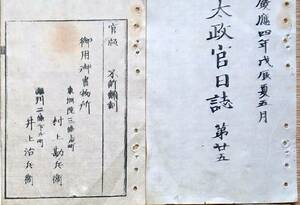 慶應四年戊辰夏五月
太政官日誌 第廿五
官版 不許翻刻
御用御書物所
東洞院三條上ル町
村上勘兵衞
堀川二條下ル町
井上治兵衞